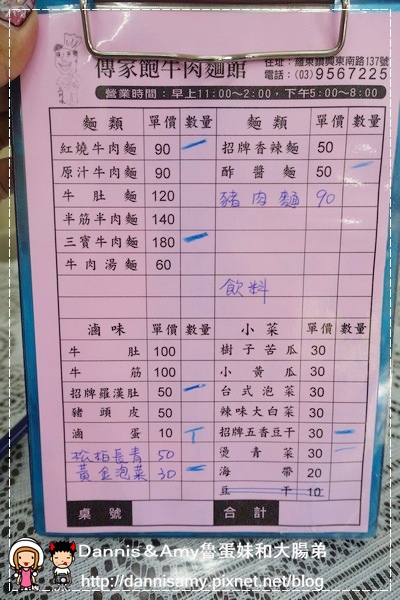 傳家飽牛肉麵館
住址：羅東鎮興東南路137號
電話：(03)9567225
營業時間：早上11:00～2:00，下午5:00～8:00
麵類 單價 數量 麵類 單價 數量
紅燒牛肉麵 90 一 招牌香辣麵 50
原汁牛肉麵 90 酢醬麵 50 一
牛肚麵 120 豬肉麵 90
半筋半肉麵 140
三寶牛肉麵 180 一
牛肉湯麵 60
飲料
滷味 單價 數量 小菜 單價 數量
牛肚 100 樹子苦瓜 30
牛筋 100 小黃瓜 30
招牌羅漢肚 50 一 台式泡菜 30
豬頭皮 50 辣味大白菜 30
滷蛋 10 T 招牌五香豆干 30 一
松柏長青 50 燙青菜 30 一
黃金泡菜 30 一 海帶 20
豆干 10
桌號 合計
Dannis＆Amy魯蛋妹和大腸弟
http://dannisamy.pixnet.net/blog